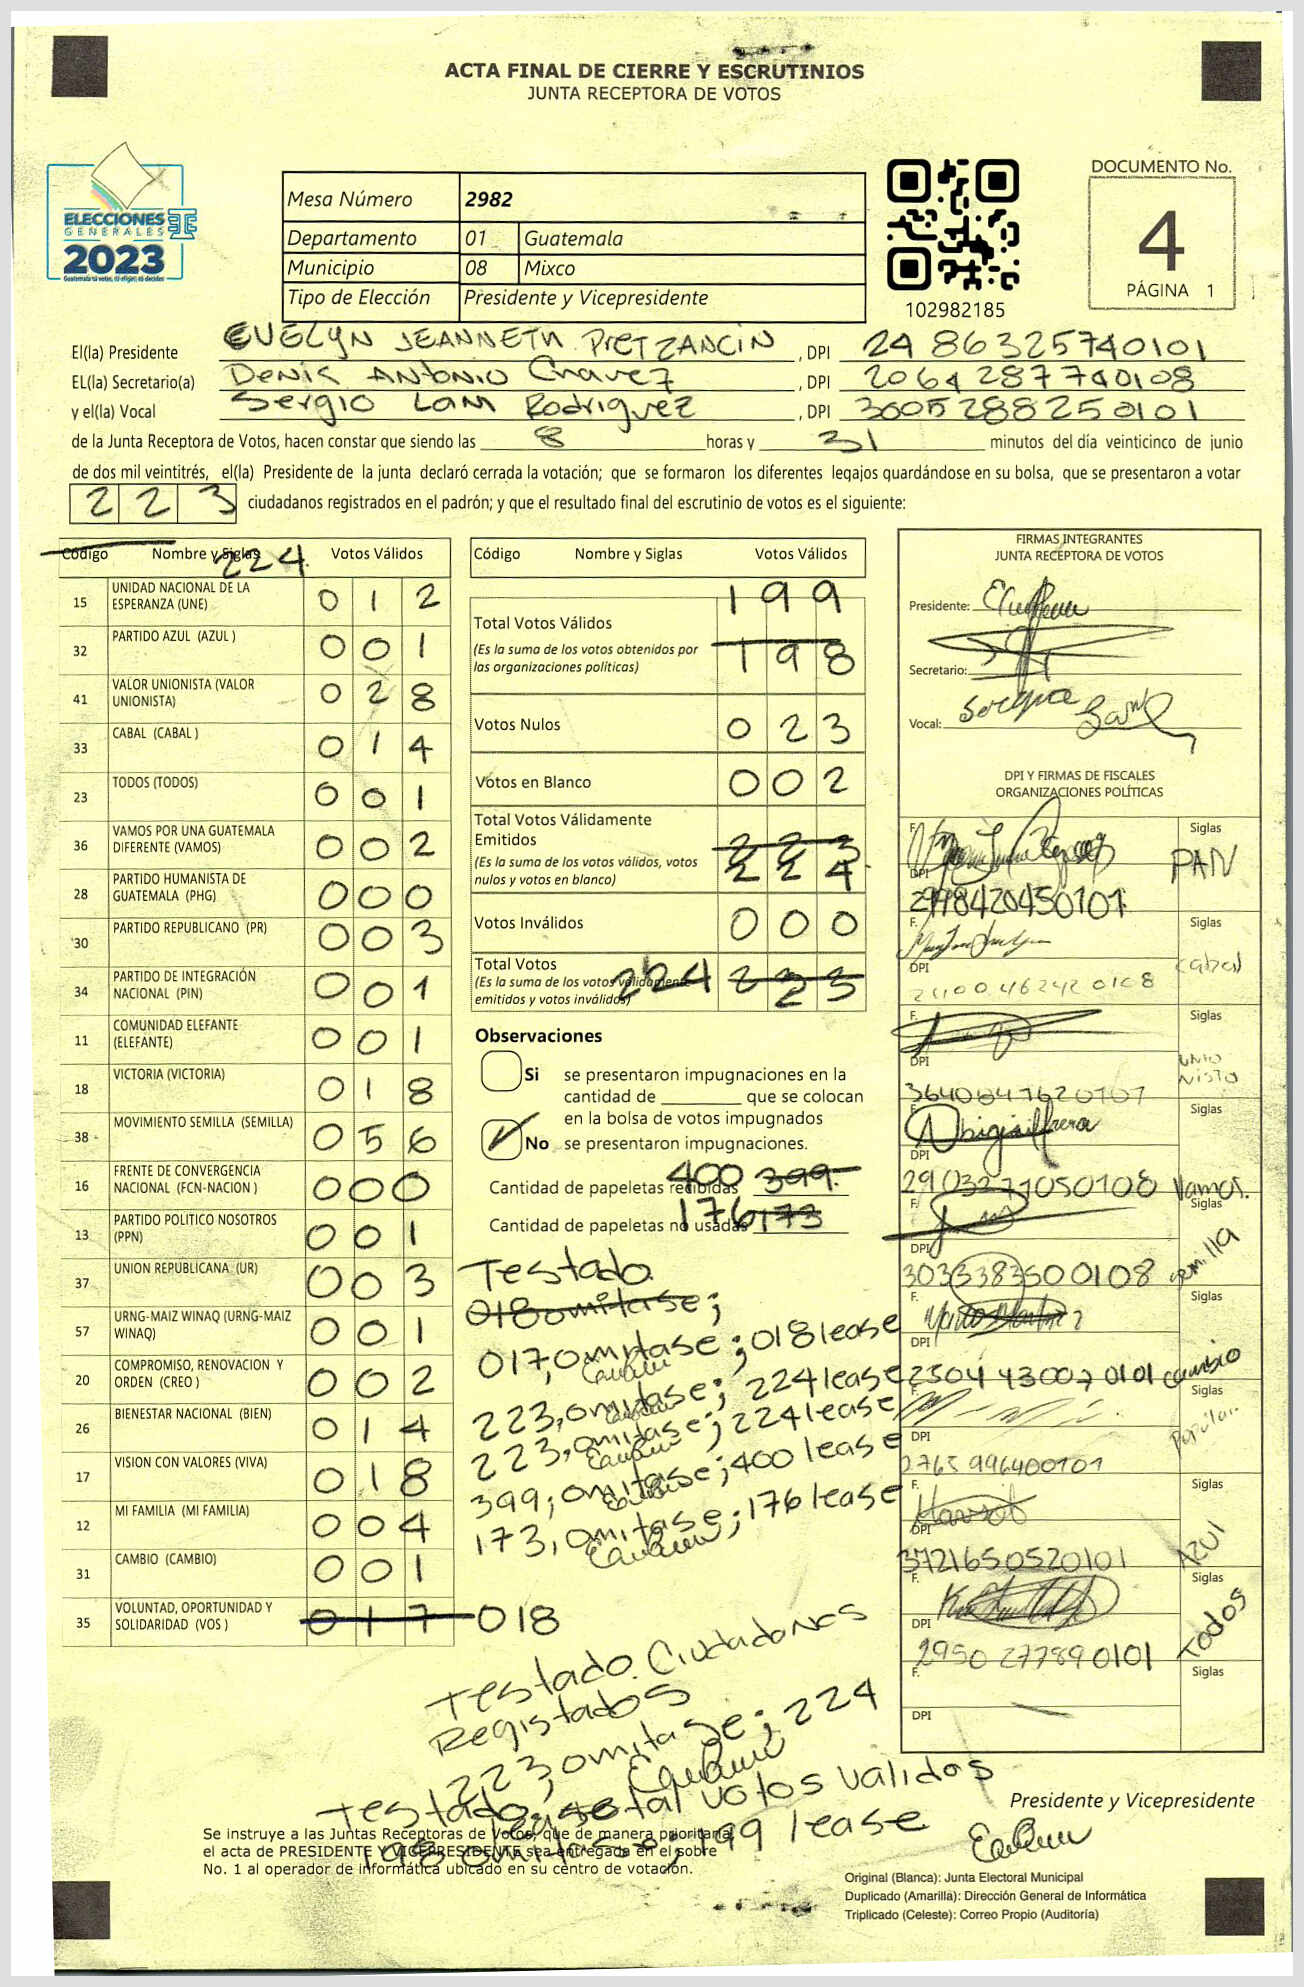 ACTA FINAL DE CIERRE Y ESCRUTINIOS
JUNTA RECEPTORA DE VOTOS
ELECCIONES
GENERALES
2023
Guatemala tú votas, tú eliges, tú decides
Mesa Número 2982
Departamento 01 Guatemala
Municipio 08 Mixco
Tipo de Elección Presidente y Vicepresidente
102982185
DOCUMENTO No.
4
PÁGINA 1
El(la) Presidente EVELYN JEANNETH PretZANCIN , DPI 2486325740101
EL(la) Secretario(a) Denis Antonio Chavez , DPI 2064287740108
y el(la) Vocal Sergio Lam Rodriguez , DPI 3005288250101
de la Junta Receptora de Votos, hacen constar que siendo las 8 horas y 31 minutos del día veinticinco de junio
de dos mil veintitrés, el(la) Presidente de la junta declaró cerrada la votación; que se formaron los diferentes legajos guardándose en su bolsa, que se presentaron a votar
223 ciudadanos registrados en el padrón; y que el resultado final del escrutinio de votos es el siguiente:
224
Código Nombre y Siglas Votos Válidos
15 UNIDAD NACIONAL DE LA ESPERANZA (UNE) 012
32 PARTIDO AZUL (AZUL ) 001
41 VALOR UNIONISTA (VALOR UNIONISTA) 028
33 CABAL (CABAL ) 014
23 TODOS (TODOS) 001
36 VAMOS POR UNA GUATEMALA DIFERENTE (VAMOS) 002
28 PARTIDO HUMANISTA DE GUATEMALA (PHG) 000
30 PARTIDO REPUBLICANO (PR) 003
34 PARTIDO DE INTEGRACIÓN NACIONAL (PIN) 001
11 COMUNIDAD ELEFANTE (ELEFANTE) 001
18 VICTORIA (VICTORIA) 018
38 MOVIMIENTO SEMILLA (SEMILLA) 056
16 FRENTE DE CONVERGENCIA NACIONAL (FCN-NACION ) 000
13 PARTIDO POLITICO NOSOTROS (PPN) 001
37 UNION REPUBLICANA (UR) 003
57 URNG-MAIZ WINAQ (URNG-MAIZ WINAQ) 001
20 COMPROMISO, RENOVACION Y ORDEN (CREO ) 002
26 BIENESTAR NACIONAL (BIEN) 014
17 VISION CON VALORES (VIVA) 018
12 MI FAMILIA (MI FAMILIA) 004
31 CAMBIO (CAMBIO) 001
35 VOLUNTAD, OPORTUNIDAD Y SOLIDARIDAD (VOS ) 017 018
Código Nombre y Siglas Votos Válidos
199
Total Votos Válidos
(Es la suma de los votos obtenidos por las organizaciones políticas) 198
Votos Nulos 023
Votos en Blanco 002
Total Votos Válidamente Emitidos 223
(Es la suma de los votos válidos, votos nulos y votos en blanco) 224
Votos Inválidos 000
Total Votos
(Es la suma de los votos válidamente emitidos y votos inválidos) 224 223
Observaciones
Si se presentaron impugnaciones en la
cantidad de ________ que se colocan
en la bolsa de votos impugnados
No se presentaron impugnaciones.
Cantidad de papeletas recibidas 400 399
Cantidad de papeletas no usadas 176 173
Testado
018 omitase;
017, omitase; 018 lease
223, omitase; 224 lease
223, omitase; 224 lease
399, omitase; 400 lease
173, omitase; 176 lease
Testado Ciudadanos
Registados
223, omitase; 224
Testado, total votos validos
198 omitase, 199 lease
FIRMAS INTEGRANTES
JUNTA RECEPTORA DE VOTOS
Presidente:
Secretario:
Vocal:
DPI Y FIRMAS DE FISCALES
ORGANIZACIONES POLÍTICAS
F. Siglas PAN
DPI 2998420450101
F. Siglas Cabal
DPI 2400462420108
F. Siglas UNIONISTA
DPI 3640047620101
F. Siglas Vamos.
DPI 2903277050108
F. Siglas semilla
DPI 3033383500108
F. cambio
DPI 2504430070101
F. Siglas Popular
DPI 2765996400101
F. Siglas AZUL
DPI 3721650520101
F. Siglas TODOS
DPI 2950277890101
F. Siglas
DPI
Presidente y Vicepresidente
Se instruye a las Juntas Receptoras de Votos, que de manera prioritaria,
el acta de PRESIDENTE Y VICEPRESIDENTE sea entregada en el sobre
No. 1 al operador de informática ubicado en su centro de votación.
Original (Blanca): Junta Electoral Municipal
Duplicado (Amarilla): Dirección General de Informática
Triplicado (Celeste): Correo Propio (Auditoría)